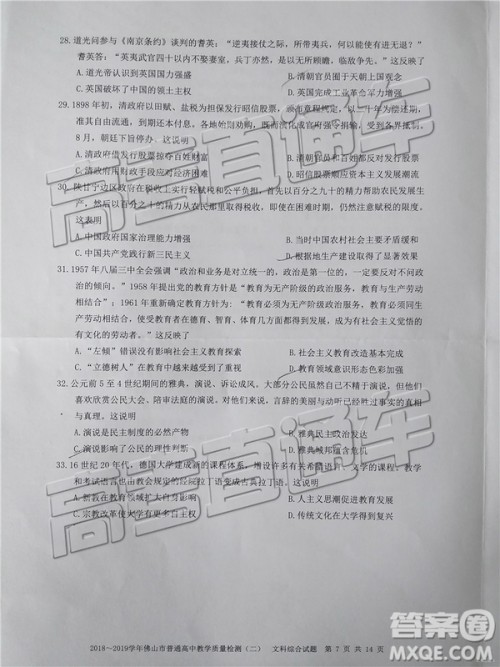 28. 道光问参与《南京条约》谈判的耆英：“逆夷接仗之际，所带夷兵，何以能使有进无退？”
耆英答：“英夷武官四十以内不娶妻室，兵丁亦然，是以无所顾忌，勇往直前。”这反映了
A. 道光帝认识到英国国力强盛
B. 清朝官员对英国了解有限
C. 英国破坏了中国的领土主权
D. 英国完成工业革命军力增强
29. 1898年初，清政府以田赋、盐税为担保发行昭信股票，年息
准其自由流通，到期还本付息。各地
8月，朝廷下旨停办。这说明
A. 清政府借发行股票掠夺百姓财富
C. 清政府
D. 昭信股票顺应资本主义发展潮流
30. 陕甘宁边区政府在税收上实行轻赋税和公平负担，
产，以百分之十的精力从农民那里取得税收，即使在困难时期，仍然注意赋税的限度。
这表明
A. 中国政府国家治理能力增强
B. 中国农村社会主要矛盾缓和
C. 中国共产党践行新三民主义
D. 根据地生产建设取得了显著成效
31. 1957年八届三中全会强调“政治和业务是对立统一的，政治是第一位的，一定要反对不问政
治的倾向”；1958年提出党的教育方针是“教育为无产阶级的政治服务，教育与生产劳动
相结合”；1961年重新确定教育方针为：“教育必须为无产阶级的政治服务，必须同生产
劳动相结合，使受教育者在德育、智育、体育几方面都得到发展，成为有社会主义觉悟的
有文化的劳动者。”这反映了
A. “左倾”错误没有影响社会主义教育探索
B. 社会主义教育改造基本完成
C. “立德树人”在教育目标中得到体现
D. 教育领域意识形态色彩加强
32. 公元前5至4世纪期间的雅典，演说、诉讼成风。大部分公民虽然已经接受了相关演说训练，
但在公民大会、陪审法庭的演说中，对来自对手的演说始终保持
与真理。这说明
A. 演说是民主制度的必然产物
B. 雅典城邦民主政治发达
C. 演说影响了公民的理性判断
33. 16世纪20年代，德国大学建成新的课程体系，增设许多有关希腊语、文学的课程，教学
和考试语言也由教会做弥撒规定的经院拉丁语变成古典拉丁语。这说明
A. 新教在教育领域扩大影响力
B. 人文主义思想促进教育发展
C. 宗教改革使大学有更多自主权
D. 传统文化在大学得到复兴
2018～2019学年佛山市普通高中教学质量检测（二） 文科综合试题 第 7 页 共 14 页
高考直通车
答案圈
MXQE.COM